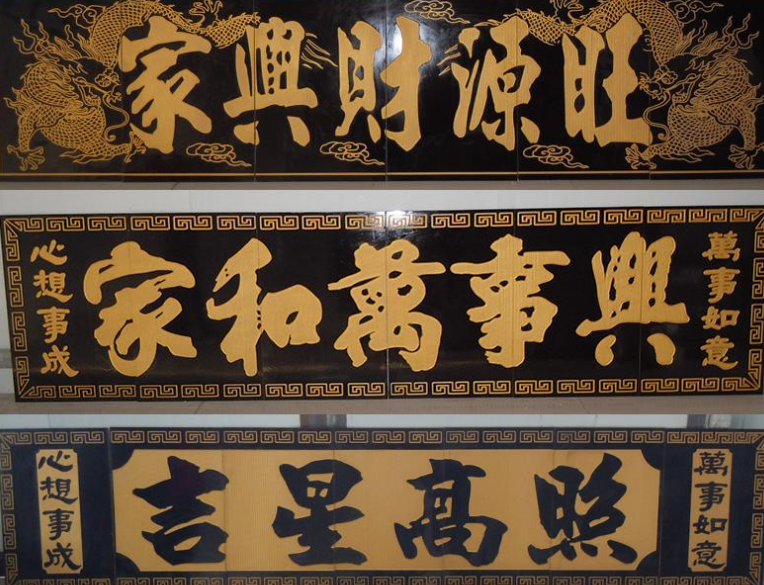 家興財源旺
心想事成
家和萬事興
萬事如意
心想事成
吉星高照
萬事如意